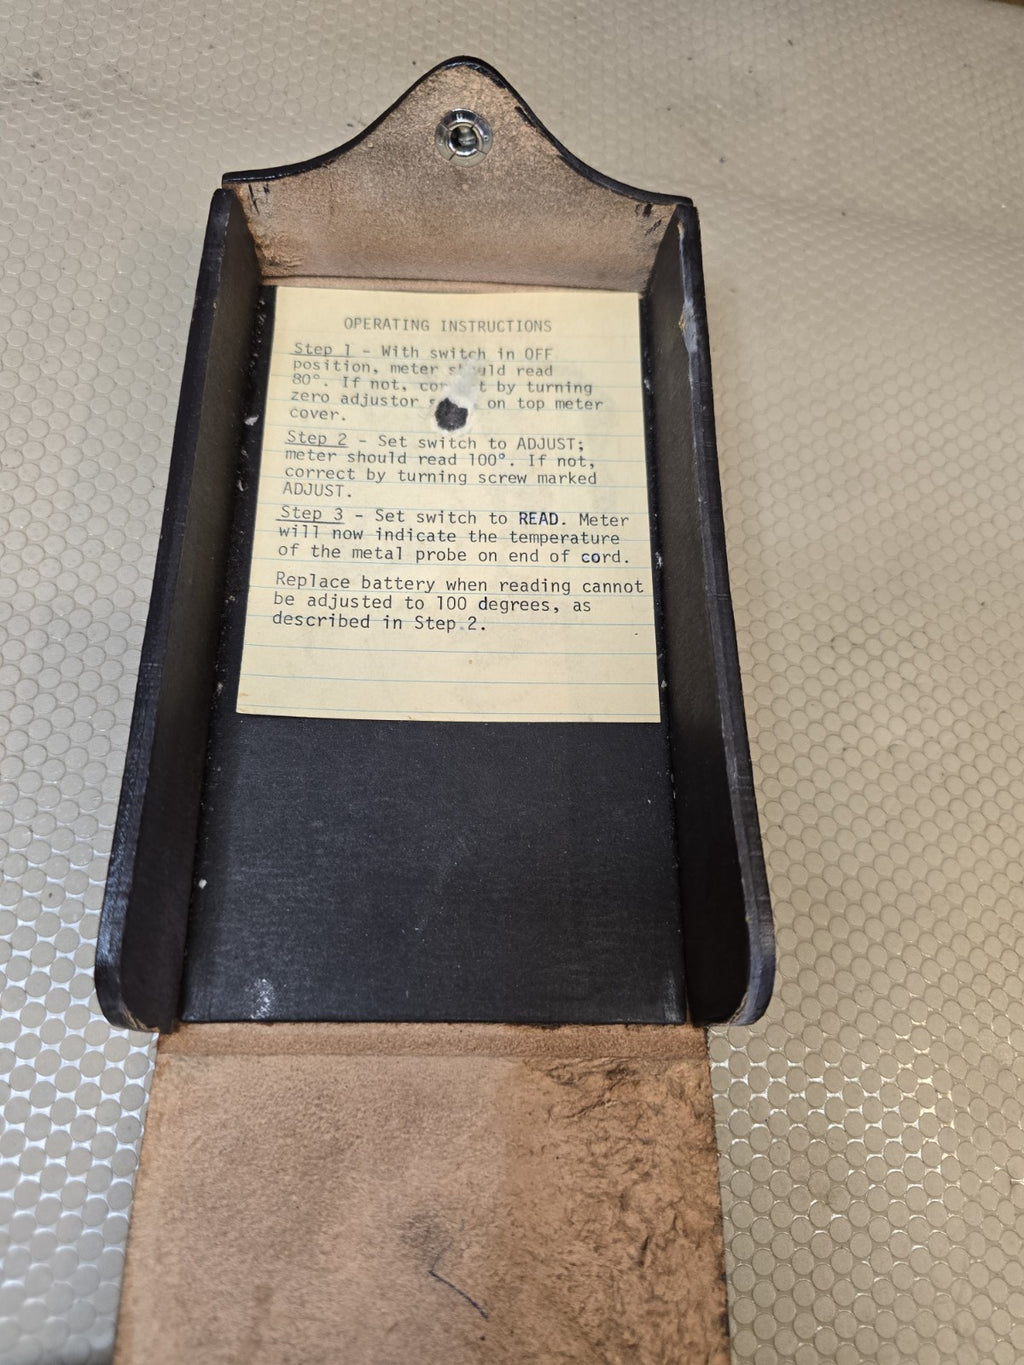 OPERATING INSTRUCTIONS
Step 1 - With switch in OFF
position, meter should read
80°. If not, correct by turning
zero adjustor on top meter
cover.
Step 2 - Set switch to ADJUST;
meter should read 100°. If not,
correct by turning screw marked
ADJUST.
Step 3 - Set switch to READ. Meter
will now indicate the temperature
of the metal probe on end of cord.
Replace battery when reading cannot
be adjusted to 100 degrees, as
described in Step 2.